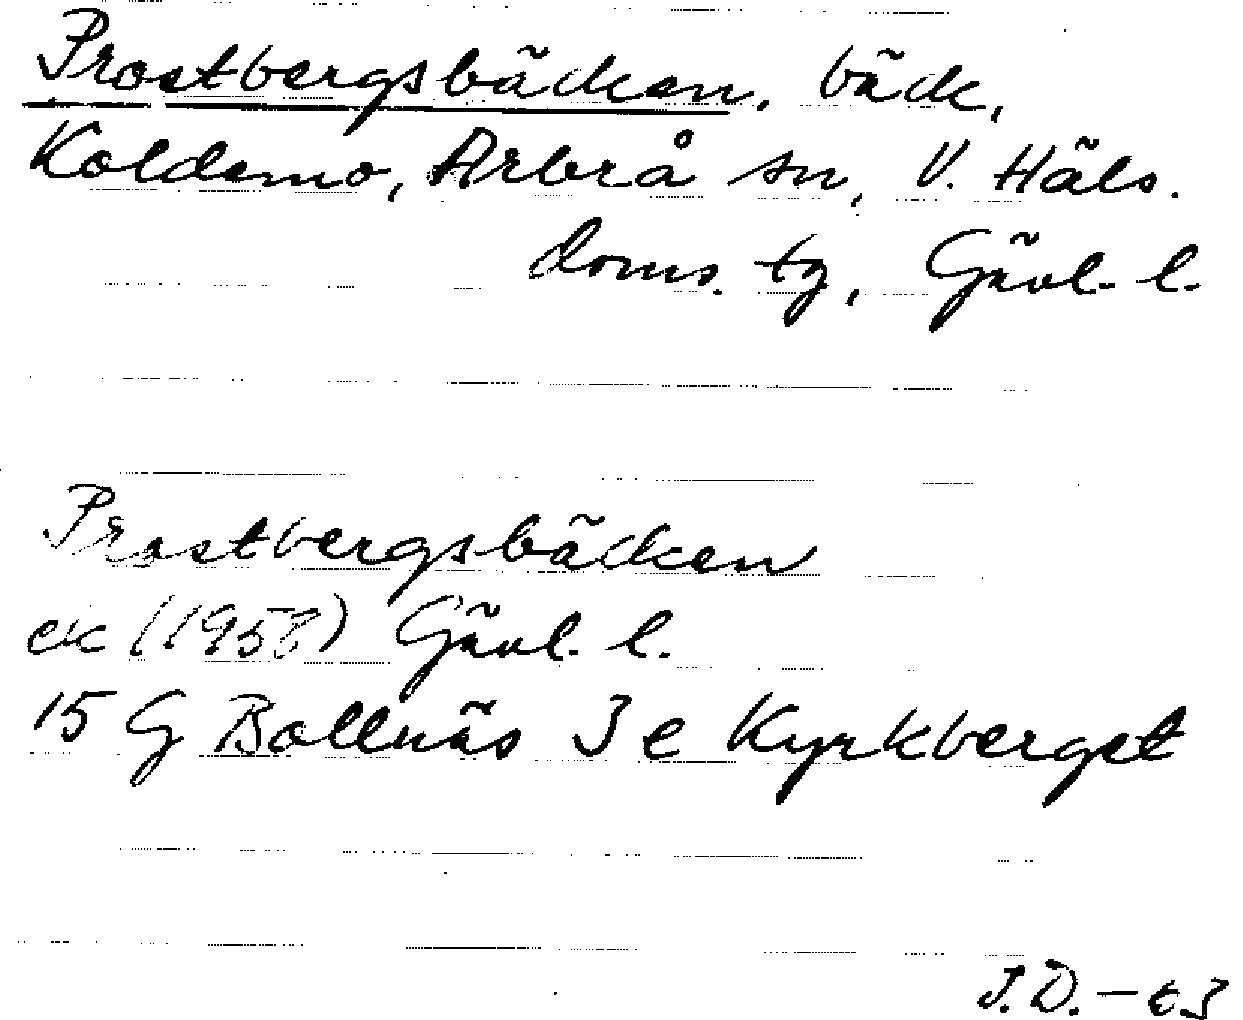 Prostbergsbäcken, bäck,
Koldemo, Arbrå sn, V. Häls.
doms. tg, Gävl. l.
Prostbergsbäcken
ek (1958) Gävl. l.
15 G Bollnäs 3 e Kyrkberget
J.D. – 63